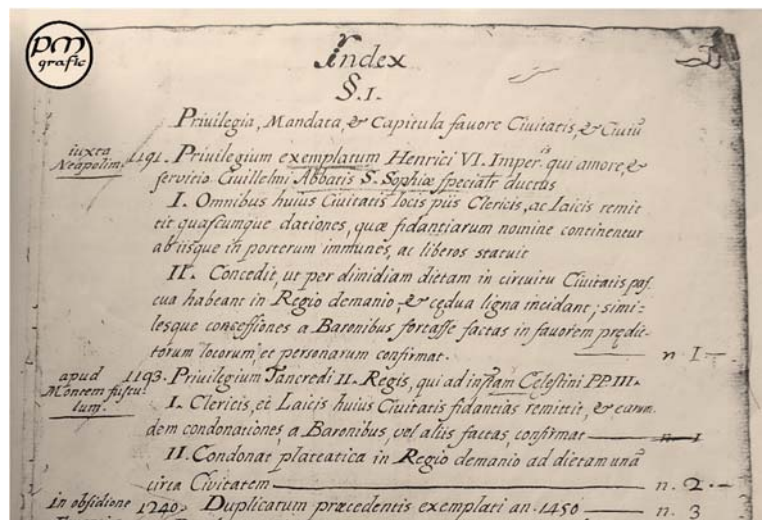 pm
grafic
Index
§. I.
Priuilegia, Mandata, & Capitula fauore Ciuitatis, & Ciuiū
iuxta
Neapolim. 1191. Priuilegium exemplatum Henrici VI. Imper.is qui amore, &
seruitio Guillelmi Abbatis S. Sophiæ speciatr ductus
I. Omnibus huius Ciuitatis locis piis Clericis, ac Laicis remit
tit quascumque dationes, quæ fidantiarum nomine continentur
ab iisque in posterum immunes, ac liberos statuit
II. Concedit, ut per dimidiam dietam in circuitu Ciuitatis pas
cua habeant in Regio demanio, & cędua ligna incidant; simi-
lesque concessiones a Baronibus fortasse factas in fauorem prędic-
torum locorum, et personarum confirmat. n 1.
apud 1193. Priuilegium Tancredi II. Regis, qui ad instam Cęlestini PP. III.
Montem fuscu-
lum. I. Clericis, et Laicis huius Ciuitatis fidantias remittit, & earum
dem condonationes, a Baronibus, vel aliis factas, confirmat n. 1
II. Condonat plateatica in Regio demanio ad dietam unā
circa Ciuitatem n. 2.
In obsidione 1240. Duplicatum præcedentis exemplati an. 1450 n. 3